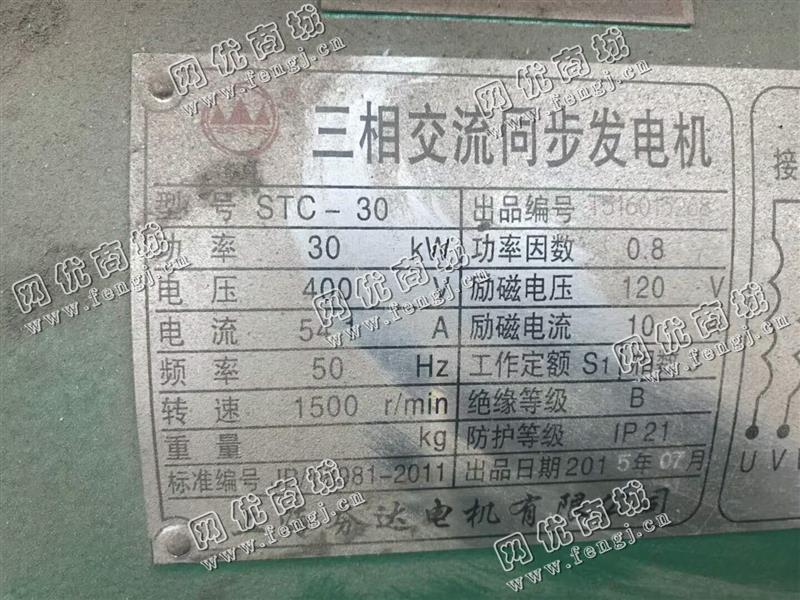 三相交流同步发电机
接
型号 STC-30 出品编号
功率 30 kW 功率因数 0.8
电压 400 V 励磁电压 120 V
电流 54.1 A 励磁电流 10
频率 50 Hz 工作定额 S1 相数
转速 1500 r/min 绝缘等级 B
重量 kg 防护等级 IP21
标准编号 981-2011 出品日期 2015年07月
达电机有限公司
U V
网优商城
www.fengj.com.cn
网优商城
www.fengj.com.cn
网优商城
www.fengj.com.cn
网优商城
www.fengj.com.cn
网优商城
www.fengj.com.cn
网优商城
www.fengj.com.cn